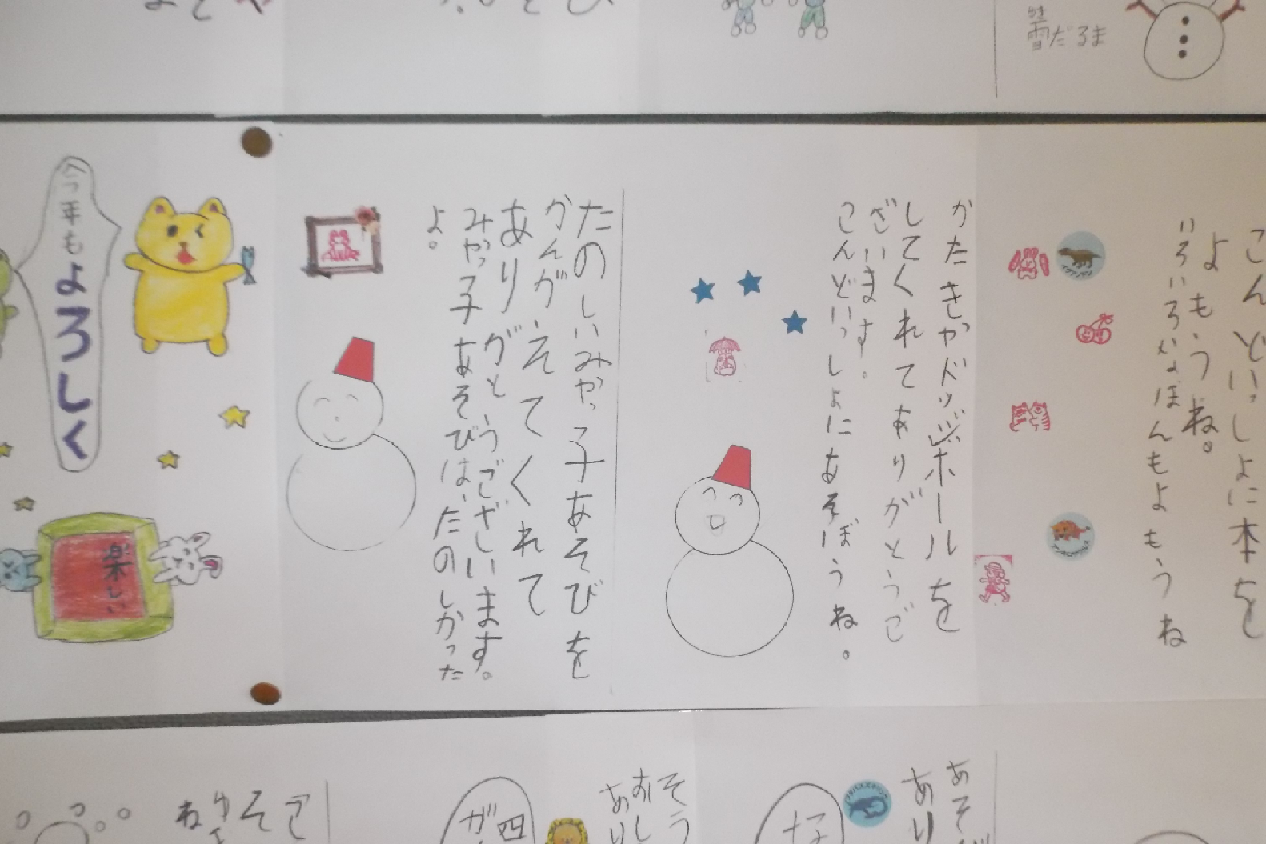 雪だるま
こんどいっしょに本を
よもうね。
いろいろなほんもよもうね
かたきやドッジボールを
してくれてありがとうご
ざいます。
こんどいっしょにあそぼうね。
たのしいみやっ子あそびを
かんがえてくれて
ありがとうございます。
みやっ子あそびは、たのしかった
よ。
今年もよろしく
楽しい
あそび
あり
そう
おし
あり
四
が